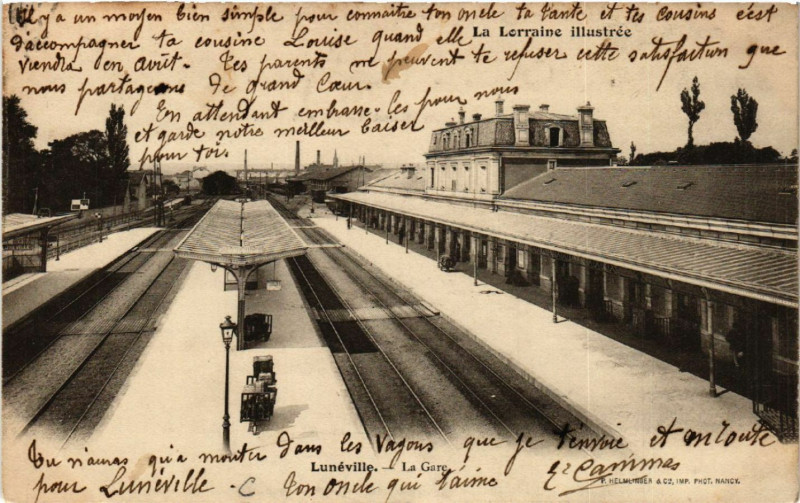 Il y a un moyen bien simple pour connaître ton oncle ta tante et tes cousins c'est
La Lorraine illustrée
d'accompagner ta cousine Louise quand elle
viendra en août. Tes parents ne peuvent te refuser cette satisfaction que
nous partageons de grand Cœur.
En attendant embrasse-les pour nous
et garde notre meilleur baiser
pour toi.
Tu n'auras qu'a monter dans les Vagons que je t'envoie et en route
Lunéville. - La Gare
pour Lunéville - Ton oncle qui t'aime
P. HELMLINGER & Co, IMP. PHOT. NANCY.